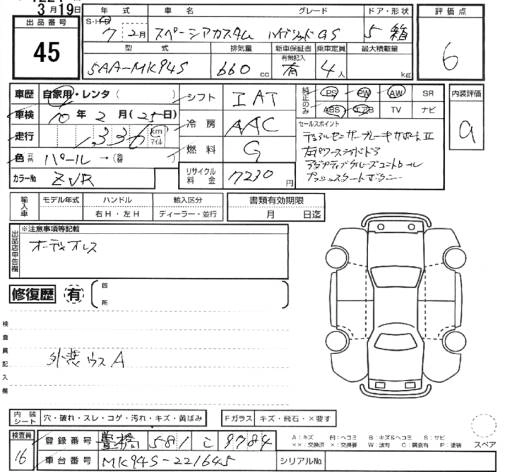 3月19日
出品番号
45
年式 車名 グレード ドア・形状
7年2月 スペーシアカスタム ハイブリッドGS 5 箱
型式 排気量 新車保証書 有無記入 乗車定員 最大積載量
5AA-MK94S 660 cc 有 4人 kg
評価点
6
車歴 自家用・レンタ( )
車検 10年2月(25日)
走行 km マイル
色 パール → ( )
カラーNo ZVR
シフト IAT
冷房 AAC
燃料 G
リサイクル料金 7230円
純正のみ
PS PW AW SR
ABS エアB TV ナビ
内装評価
a
セールスポイント
デュアルセンサーブレーキサポートⅡ
アダプティブクルーズコントロール
プッシュスタート
輸入車 モデル年式 ハンドル 輸入区分
右H・左H ディーラー・並行
書類有効期限
月 日迄
出品店申告欄
※注意事項等記載
オーディオレス
修復歴 有 箇所
検査員記入欄
外装ウスA
内装シート 穴・破れ・スレ・コゲ・汚れ・キズ・黄ばみ
Fガラス キズ・飛石・×要す
検査員
16
登録番号 豊橋 581 こ 9784
車台番号 MK94S-221645
シリアルNo
スペア